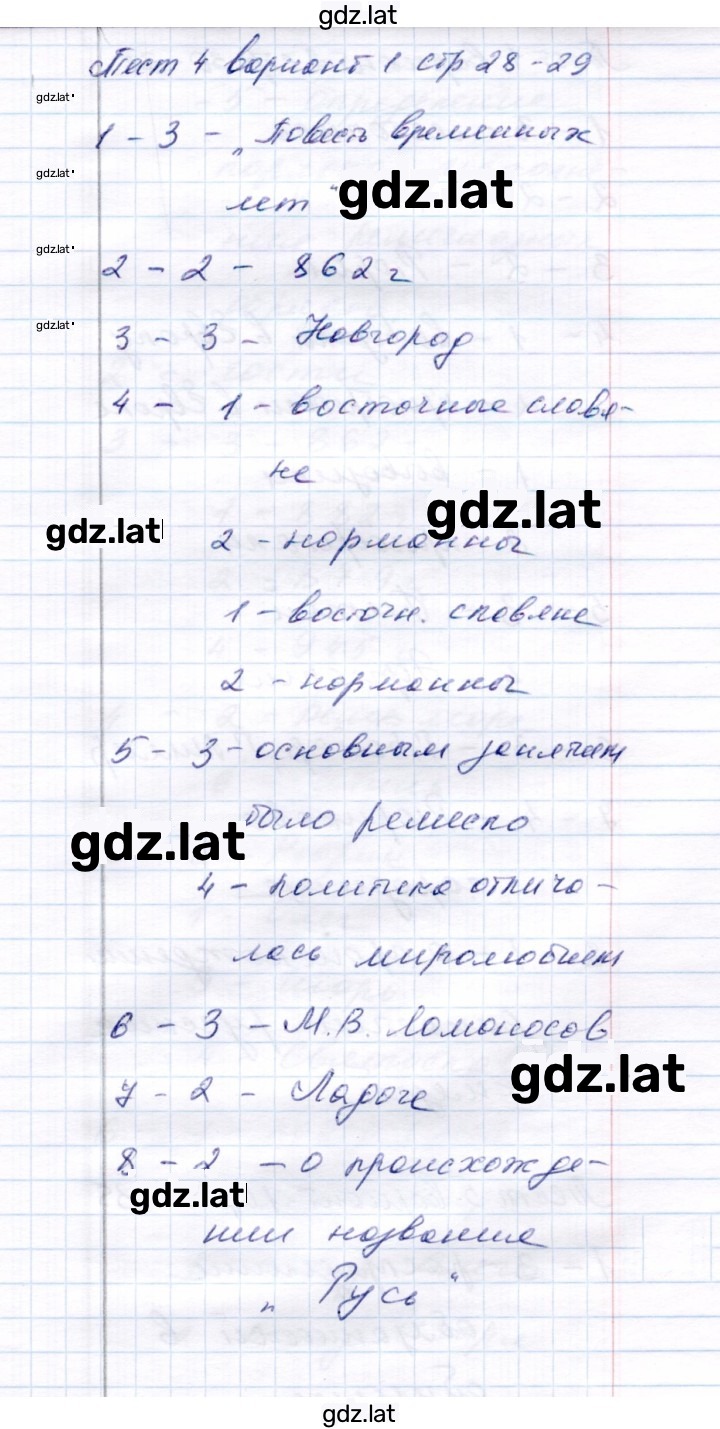 gdz.lat
Тест 4 вариант 1 стр 28-29
gdz.lat
1 - 3 - „Повесть временных
gdz.lat
лет“ gdz.lat
gdz.lat
2 - 2 - 862 г
gdz.lat
3 - 3 - Новгород
4 - 1 - восточные славя-
не
gdz.lat
gdz.lat
2 - норманны
1 - восточн. славяне
2 - норманны
5 - 3 - основным занятием
было ремесло
gdz.lat
4 - политика отлича-
лась миролюбием
6 - 3 - М.В. Ломоносов
gdz.lat
7 - 2 - Ладоге
8 - 2 - о происхожде-
gdz.lat
нии названия
„Русь“
gdz.lat